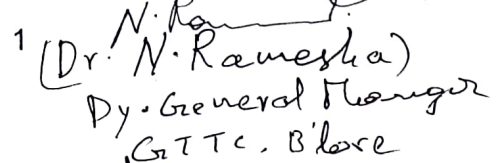 N. Ra
1 (Dr. N. Ramesha)
Dy. General Manager
GTTC, B'lore